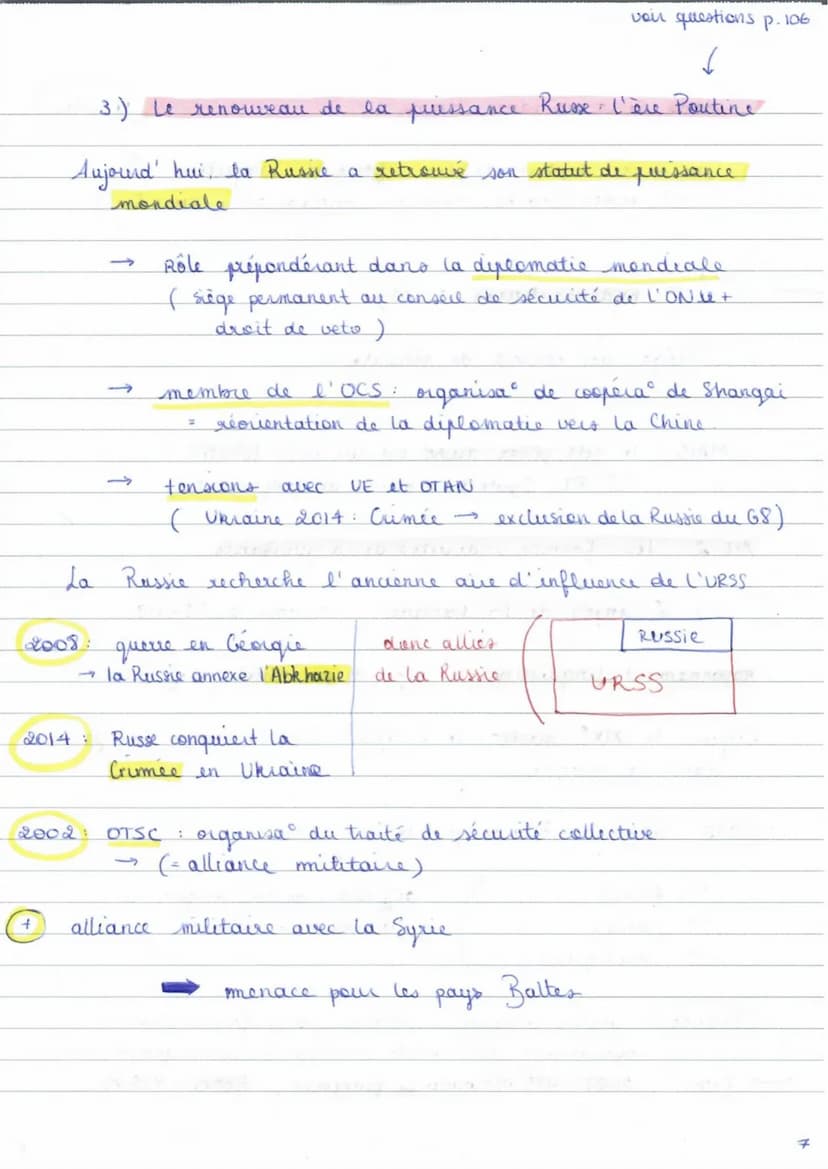 voir questions p. 106
↓
3.) Le renouveau de la puissance Russe : l'ère Poutine
Aujourd'hui, la Russie a retrouvé son statut de puissance
mondiale
→ Rôle prépondérant dans la diplomatie mondiale
( siège permanent au conseil de sécurité de l'ONU +
droit de veto )
→ membre de l'OCS : organisa° de coopéra° de Shangai
= réorientation de la diplomatie vers la Chine.
→ tensions avec UE et OTAN
( Ukraine 2014 : Crimée → exclusion de la Russie du G8 )
La Russie recherche l'ancienne aire d'influence de l'URSS
2008 : guerre en Géorgie
→ la Russie annexe l'Abkhazie
donc alliés
de la Russie
RUSSIE
URSS
2014 : Russe conquiert la
Crimée en Ukraine
2002 : OTSC : organisa° du traité de sécurité collective
→ (= alliance militaire)
+ alliance militaire avec la Syrie
➡ menace pour les pays Baltes
7